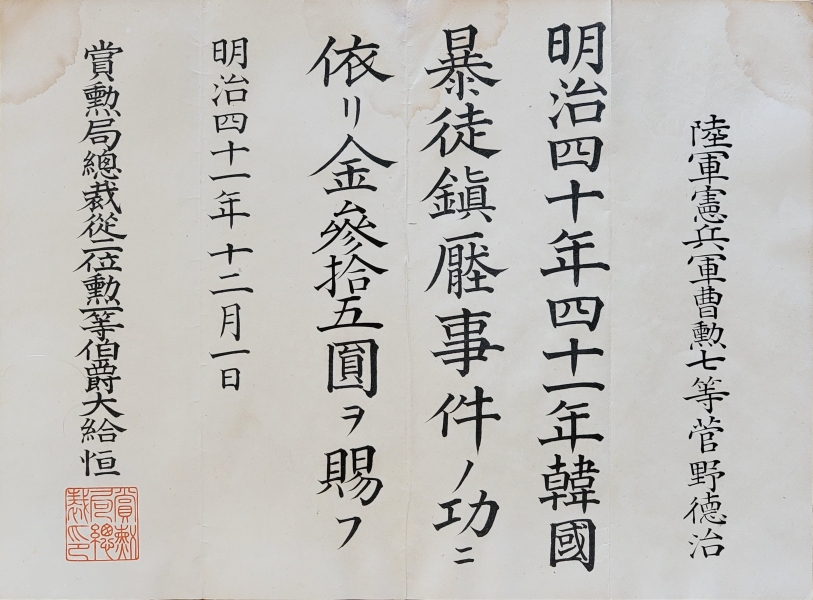 陸軍憲兵軍曹勲七等菅野德治
明治四十年四十一年韓國
暴徒鎭壓事件ノ功ニ
依リ金參拾五圓ヲ賜フ
明治四十一年十二月一日
賞勲局總裁從二位勲一等伯爵大給恒
賞勲局總裁印